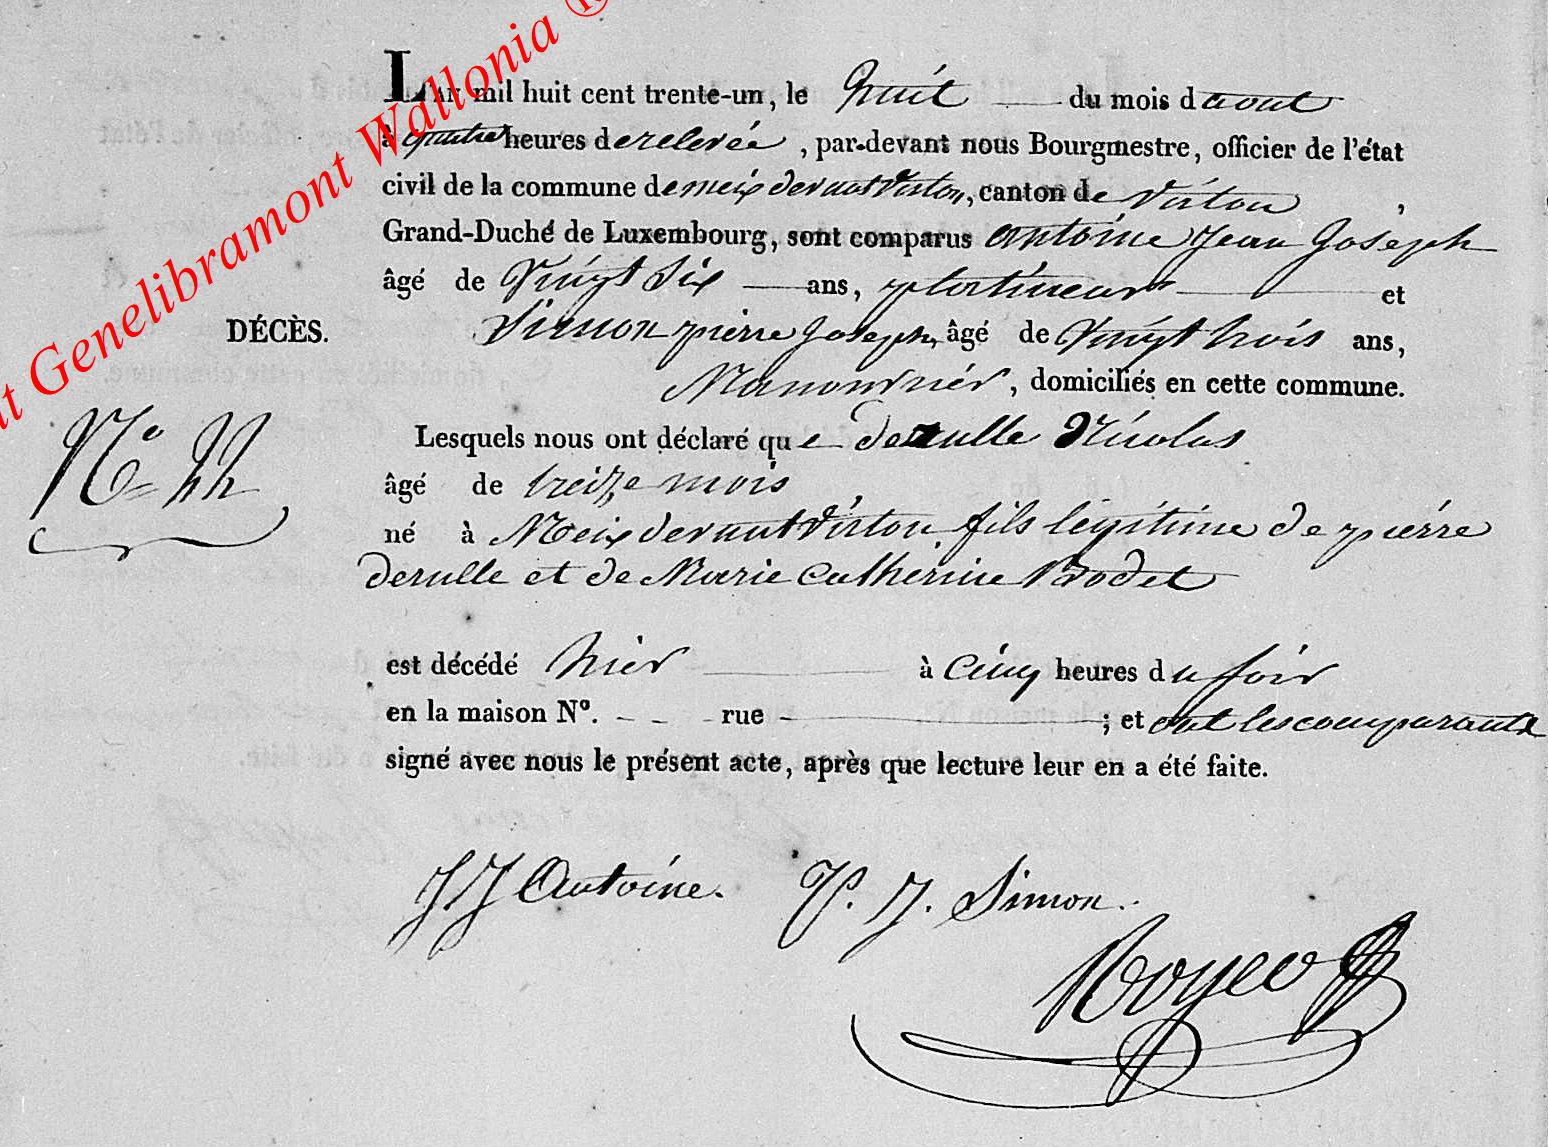 t Genelibramont Wallonia ®
L'AN mil huit cent trente-un, le huit du mois d aout
à quatre heures de relevée, par-devant nous Bourgmestre, officier de l'état
civil de la commune de meix devant Virton, canton de Virton,
Grand-Duché de Luxembourg, sont comparus antoine Jean Joseph
âgé de Vingt Six ans, et
DÉCÈS.
Simon pierre Joseph, âgé de Vingt trois ans,
Manouvrier, domiciliés en cette commune.
N° 22
Lesquels nous ont déclaré que derulle Nicolas
âgé de treize mois
né à Meix devant Virton, fils légitime de pierre
derulle et de Marie Catherine Rodet
est décédé hier à cinq heures du soir
en la maison N°. - - - rue - ; et ont les comparants
signé avec nous le présent acte, après que lecture leur en a été faite.
J J Antoine. P. J. Simon.